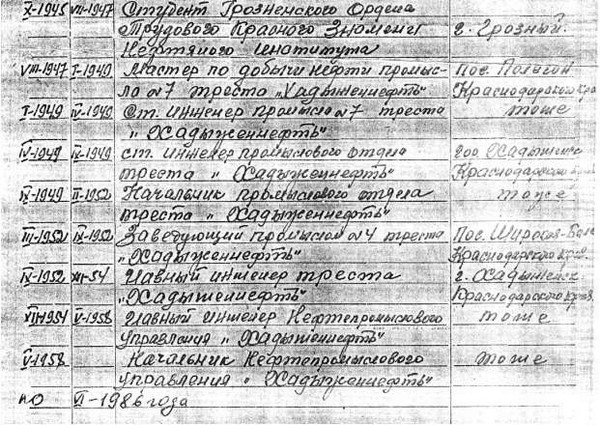 X-1945 VII-1947 Студент Грозненского Ордена
Трудового Красного Знамени г. Грозный.
Нефтяного Института
VIII-1947 I-1949 Мастер по добычи нефти промыс- пос.
ла №7 треста "Хадыженнефть" Краснодарского края
I-1949 IV-1949 Ст. инженер промысла №7 треста тоже
"Хадыженнефть"
IV-1949 IX-1949 ст. инженер промыслового отдела гор. Хадыженск
треста "Хадыженнефть" Краснодарского края
IX-1949 II-1952 Начальник промыслового отдела тоже
треста "Хадыженнефть"
III-1952 IX-1952 Заведующий промыслом №4 треста пос.
"Хадыженнефть" Краснодарского края
IX-1952 XII-54 Главный инженер треста г. Хадыженск
"Хадыженнефть" Краснодарского края.
XII-1954 V-1958 Главный инженер Нефтепромыслового тоже
управления "Хадыженнефть"
V-1958 Начальник Нефтепромыслового тоже
управления "Хадыженнефть"
по VI-1986 года